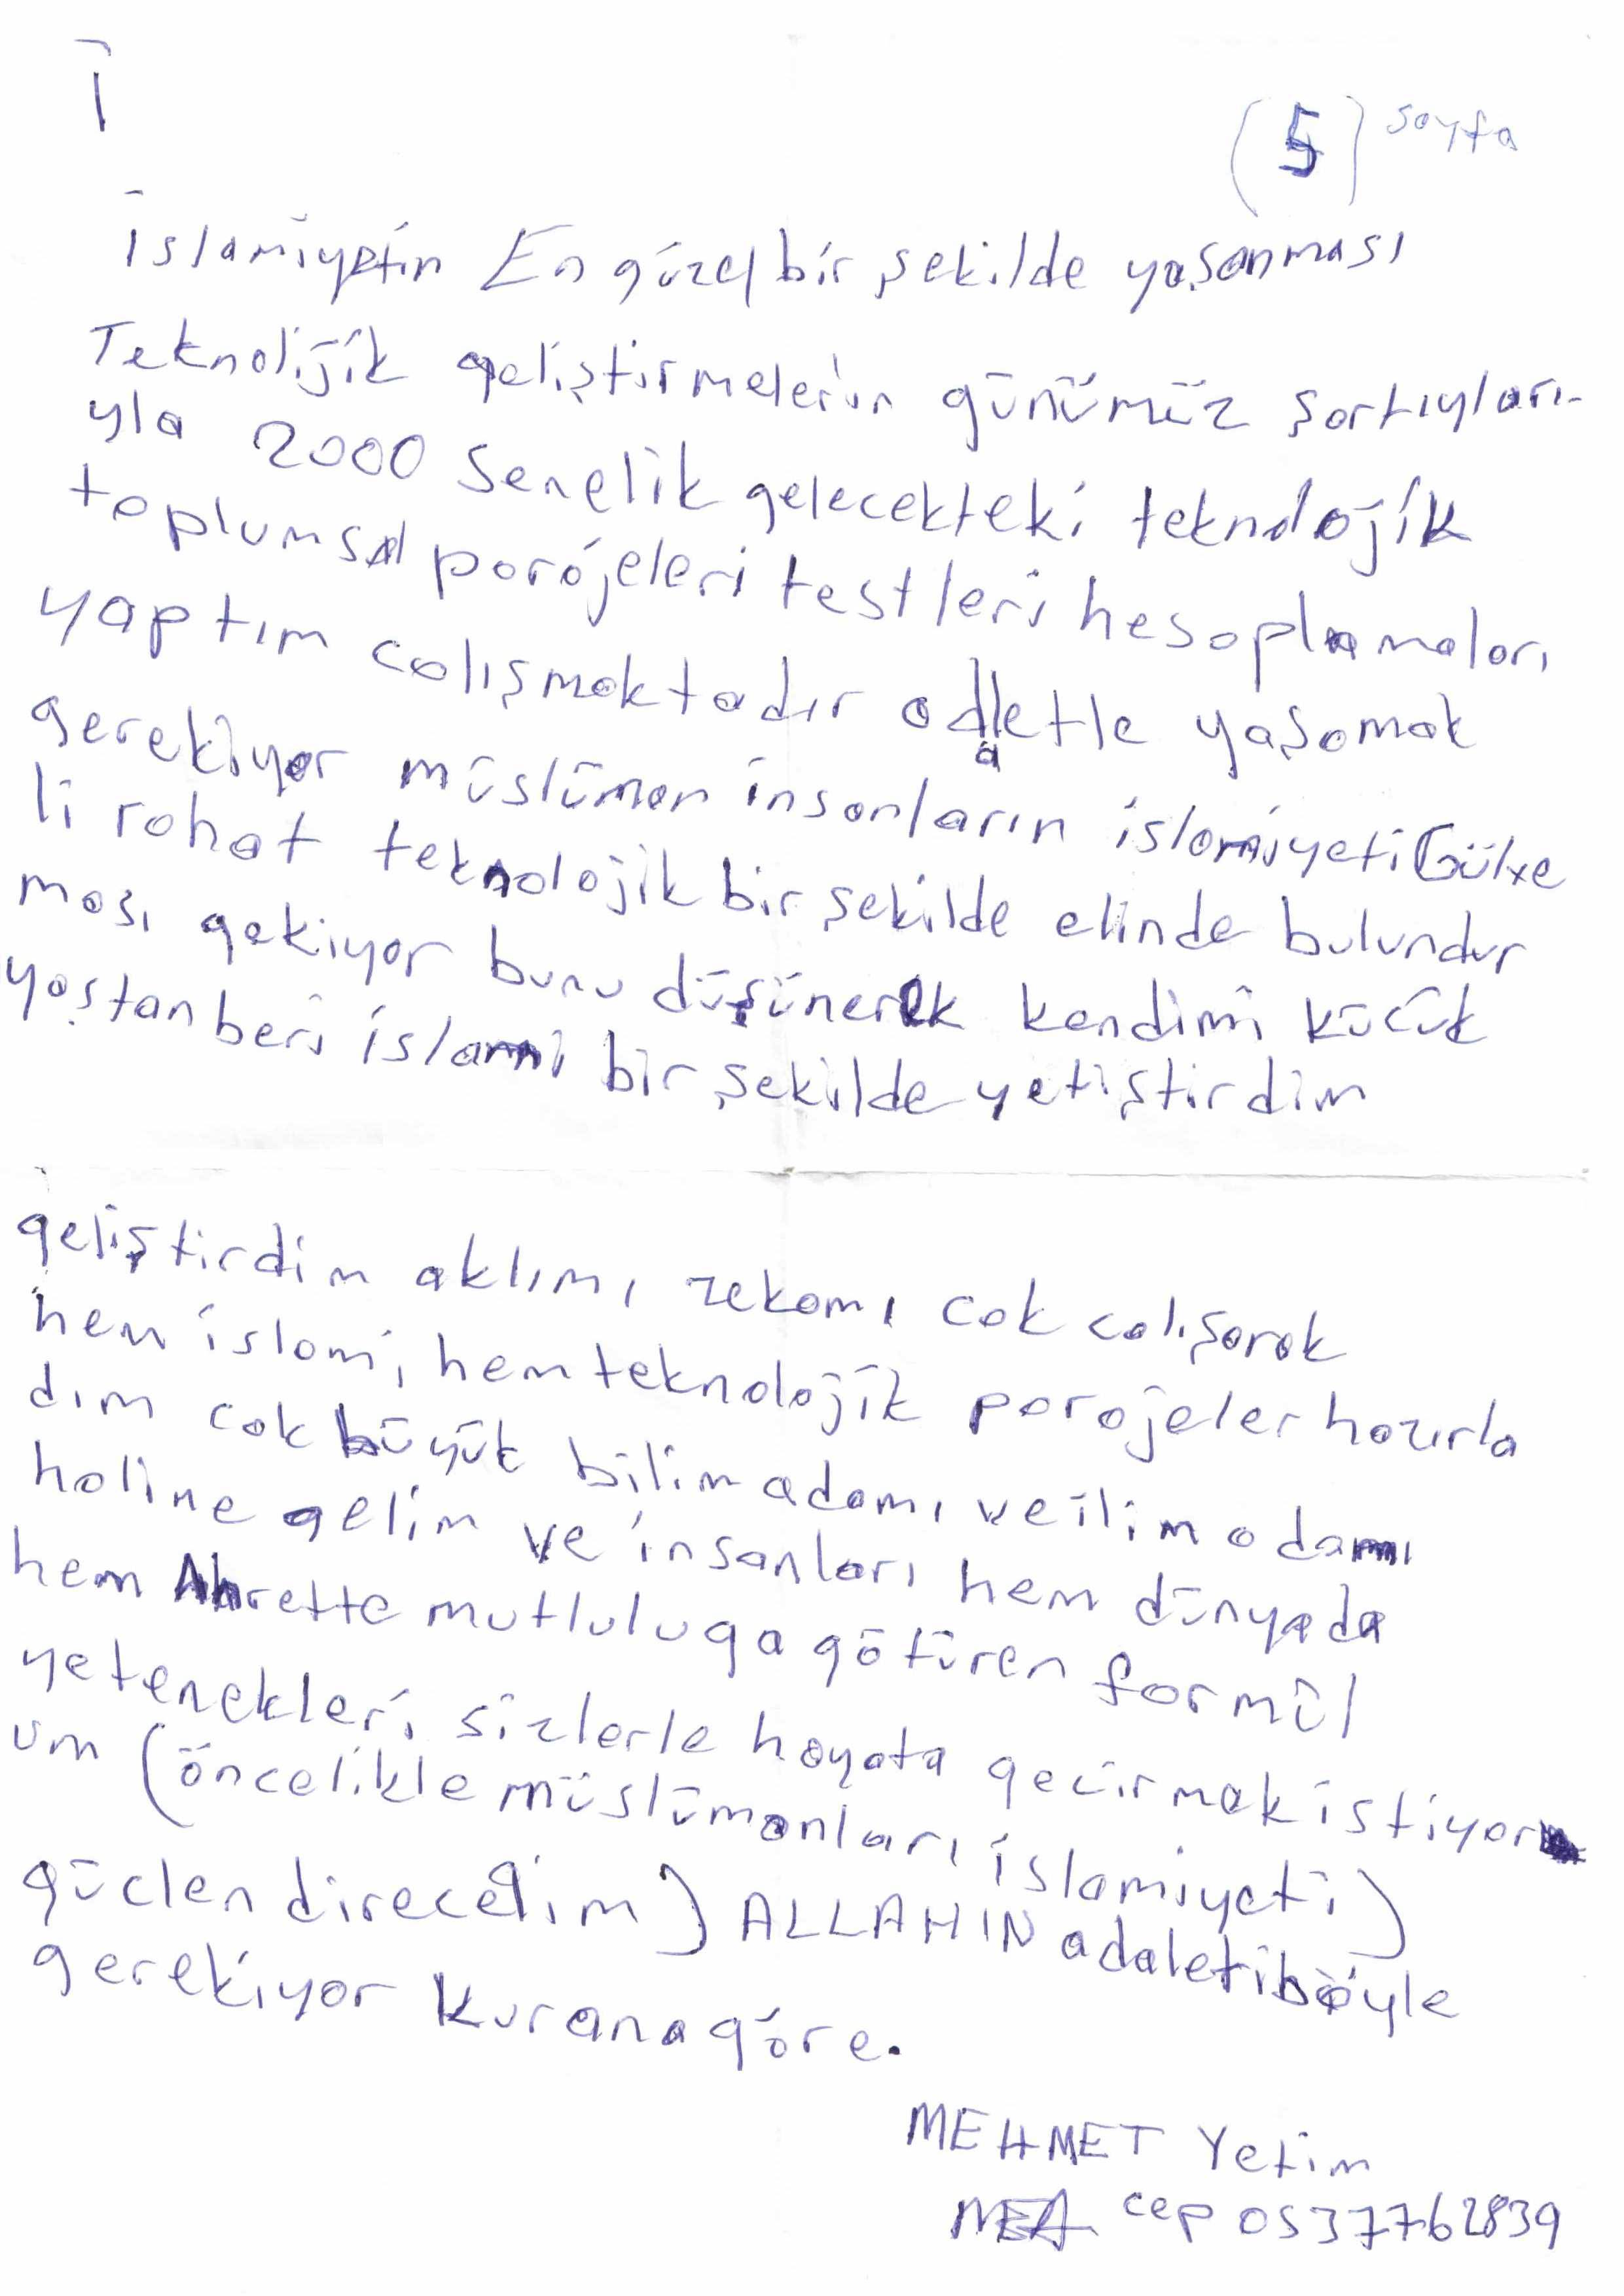 (5) sayfa
İslamiyetin En güzel bir şekilde yaşanması
Teknolijik geliştirmelerin günümüz şartıyları-
yla 2000 Senelik gelecekteki teknolojik
toplumsal porójeleri testleri hesaplamaları
yaptım calışmaktadır adaletle yaşamak
gerekiyor müslüman insanların islamiyeti
li rahat teknolojik bir şekilde elinde bulundur
ması gekiyor bunu düşünerek kendimi kücük
yaştan beri islami bir şekilde yetiştirdim
geliştirdim aklımı zekamı cok calışarak
hem islami hem teknolojik porojeler hazırla
dım cok büyük bilim adamı ve ilim adamı
haline gelim ve insanları hem dünyada
hem Ahrette mutluluga götüren formül
yetenekleri sizlerle hayata gecirmek istiyor
um (öncelikle müslümanları islamiyeti)
güclen direcegim) ALLAHIN adaleti böyle
gerekiyor kurana göre.
MEHMET Yetim
cep 0537762839